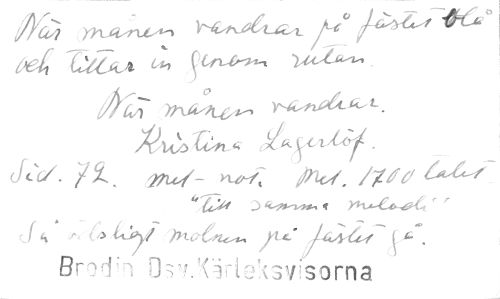 När månen vandrar på fästet blå
och tittar in genom rutan.
När månen vandrar.
Kristina Lagerlöf.
Sid. 72. mel-not. Mel. 1700 talet
"till samma melodi"
Så ödsligt molnen på fästet gå.
Brodin Dsv.Kärleksvisorna